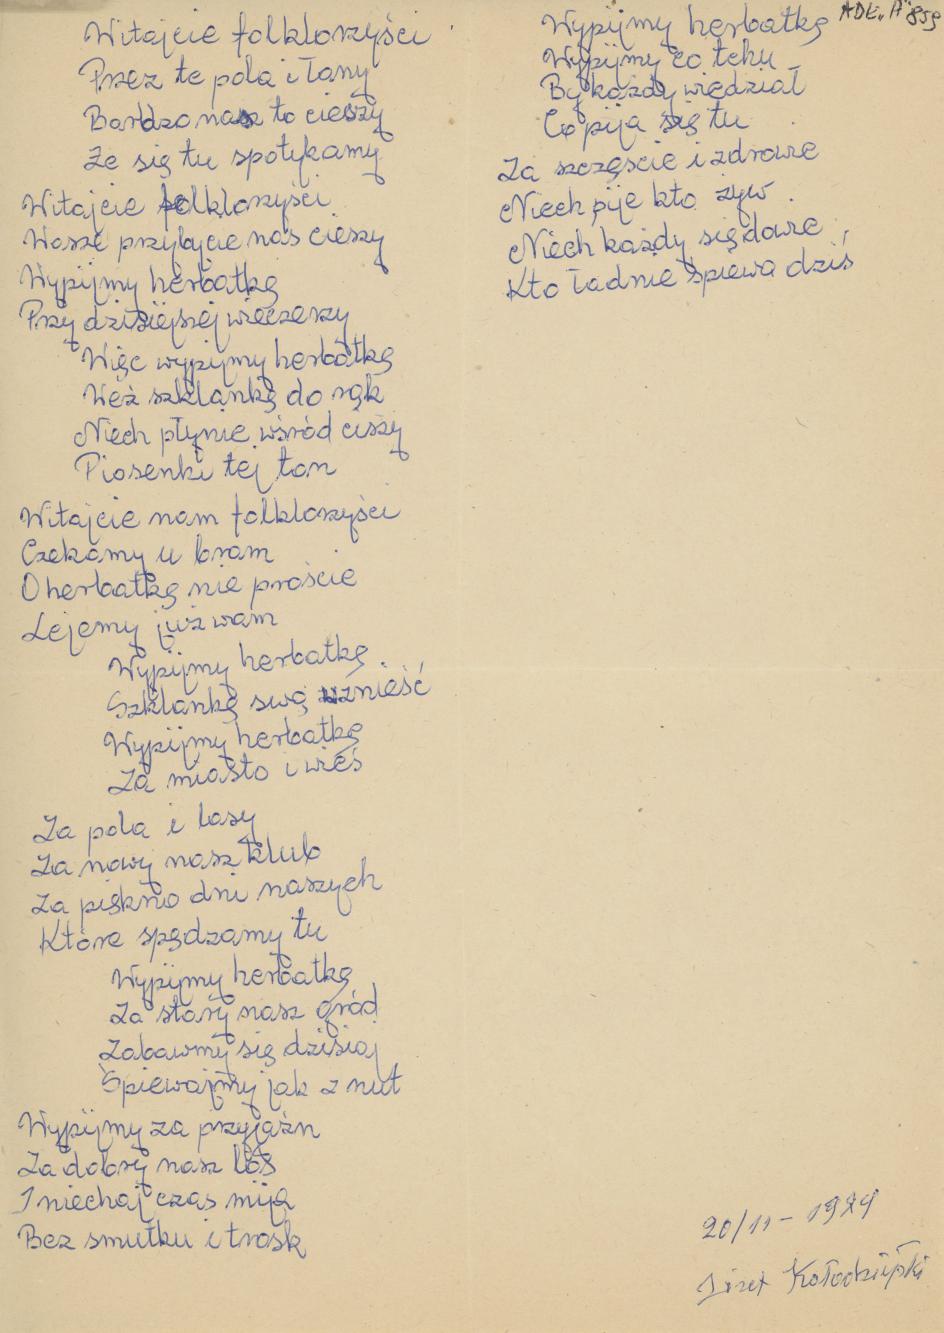 Witajcie folklorzyści
Przez te pola i łany
Bardzo nasz to cieszy
Że się tu spotykamy
Witajcie folklorzyści
Wasze przybycie nas cieszy
Wypijmy herbatkę
Przy dzisiejszej wieczerzy
Więc wypijmy herbatkę
Weź szklankę do rąk
Niech płynie wśród ciszy
Piosenki tej ton
Witajcie nam folklorzyści
Czekamy u bram
O herbatkę nie proście
Lejemy już wam
Wypijmy herbatkę
Szklankę swą wznieść
Wypijmy herbatkę
Za miasto i wieś
Za pola i lasy
Za nowy nasz klub
Za piękno dni naszych
Które spędzamy tu
Wypijmy herbatkę
Za stary nasz gród
Zabawmy się dzisiaj
Śpiewajmy jak z nut
Wypijmy za przyjaźn
Za dobry nasz los
I niechaj czas mija
Bez smutku i trosk
ADE "A" 859
Wypijmy herbatkę
Wypijmy co teku
By każdy wiedział
Co pija się tu
Za szczęście i zdrowie
Niech pije kto żyw
Niech każdy się dowie
Kto ładnie śpiewa dziś
20/11 - 1979